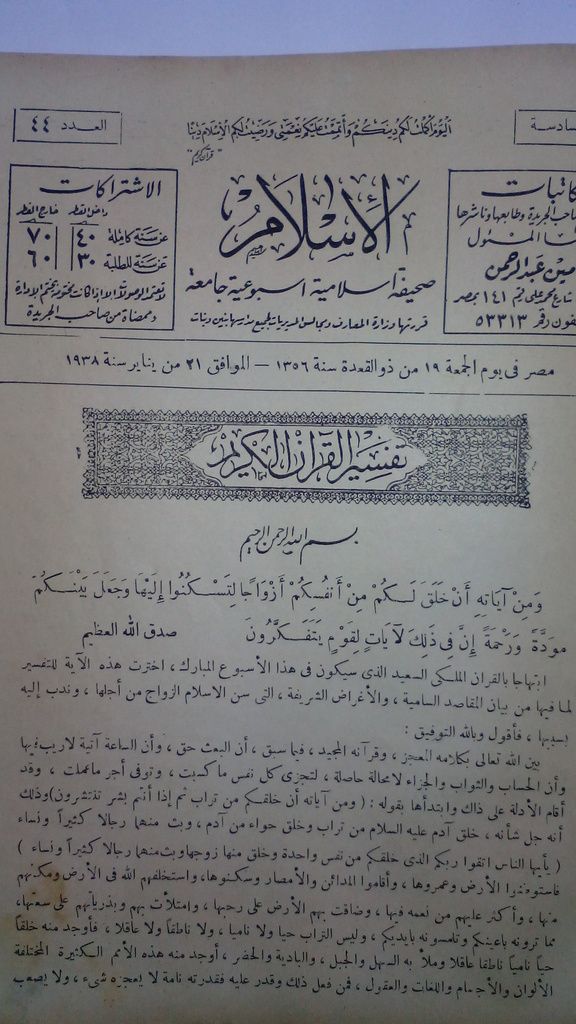 العدد ٤٤
اليَوْمَ أَكْمَلْتُ لَكُمْ دِينَكُمْ وَأَتْمَمْتُ عَلَيْكُمْ نِعْمَتِى وَرَضِيتُ لَكُمُ الإِسْلَامَ دِينًا
"قرآن كريم"
الاشتراكات
داخل القطر خارج القطر
عن سنة كاملة ٤٠ ٧٠
عن سنة للطلبة ٣٠ ٦٠
وممضاة من صاحب الجريدة
الإسلام
صحيفة اسلامية اسبوعية جامعة
قررتها وزارة المعارف ومجالس المديريات لجميع مدارسها بنين وبنات
المسئول
عبد الرحمن
شارع محمد على رقم ١٤١ بمصر
رقم ٥٣٣١٣
مصر فى يوم الجمعة ١٩ من ذو القعدة سنة ١٣٥٦ — الموافق ٢١ من يناير سنة ١٩٣٨
تفسير القرآن الكريم
بسم الله الرحمن الرحيم
وَمِنْ آيَاتِهِ أَنْ خَلَقَ لَكُمْ مِنْ أَنفُسِكُمْ أَزْوَاجًا لِتَسْكُنُوا إِلَيْهَا وَجَعَلَ بَيْنَكُمْ
مَوَدَّةً وَرَحْمَةً إِنَّ فِى ذَلِكَ لَآيَاتٍ لِقَوْمٍ يَتَفَكَّرُونَ صدق الله العظيم
ابتهاجا بالقران الملكى السعيد الذى سيكون فى هذا الأسبوع المبارك ، اخترت هذه الآية للتفسير
لما فيها من بيان المقاصد السامية ، والأغراض الشريفة ، التى سن الاسلام الزواج من أجلها ، وندب إليه
بسببها ، فأقول وبالله التوفيق :
بين الله تعالى بكلامه المعجز ، وقرآنه المجيد ، فيما سبق ، أن البعث حق ، وأن الساعة آتية لاريب فيها
وأن الحساب والثواب والجزاء لامحالة حاصلة ، لتجزى كل نفس ما كسبت ، وتوفى أجر ماعملت ، وقد
أقام الأدلة على ذلك وابتدأها بقوله : ( ومن آياته أن خلقكم من تراب ثم إذا أنتم بشر تنتشرون ) وذلك
أنه جل شأنه ، خلق آدم عليه السلام من تراب وخلق حواء من آدم ، وبث منهما رجالا كثيراً ونساء
( يأيها الناس اتقوا ربكم الذى خلقكم من نفس واحدة وخلق منها زوجها وبث منهما رجالا كثيراً ونساء )
الأرض وعمروها ، وأقاموا المدائن والأمصار وسكنوها ، واستخلفهم الله فى الأرض ومكنهم
منها ، وأكثر عليهم من نعمه فيها ، وضاقت بهم الأرض على رحبها ، وامتلأت بهم وبذرياتهم على سعتها،
مما ترونه بأعينكم وتلمسونه بأيديكم ، وليس التراب حيا ولا ناميا ، ولا ناطقاً ولا عاقلا ، فأوجد منه خلقاً
حياً نامياً ناطقا عاقلا وملأ به السهل والجبل ، والبادية والحضر ، أوجد منه هذه الأمم الكثيرة المختلفة
الألوان والأجسام واللغات والعقول ، فمن فعل ذلك وقدر عليه فقدرته تامة لا يعجزه شىء ، ولا يصعب